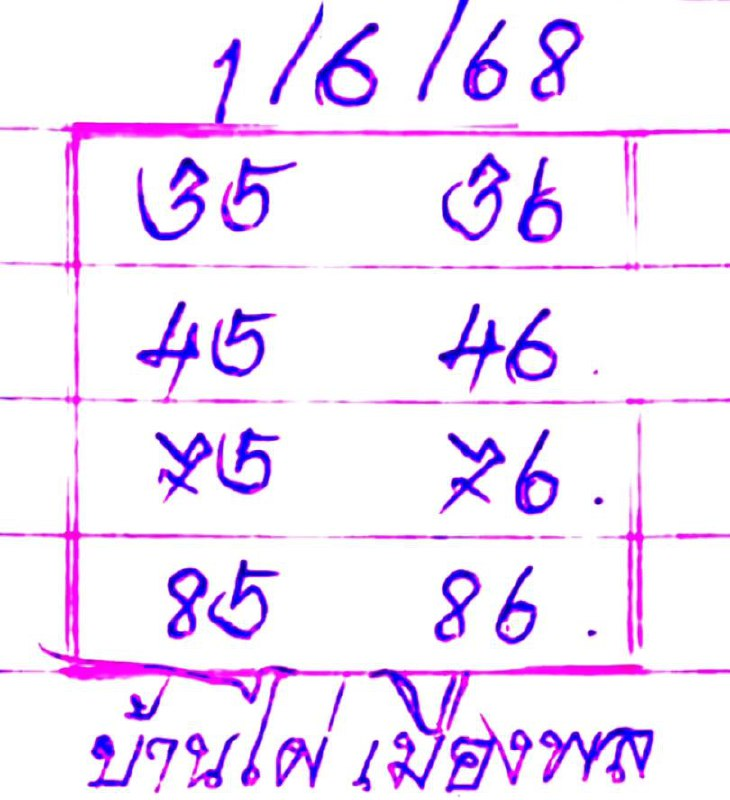 1/6/68
35 36
45 46.
75 76.
85 86.
บ้านไผ่ เมืองพล